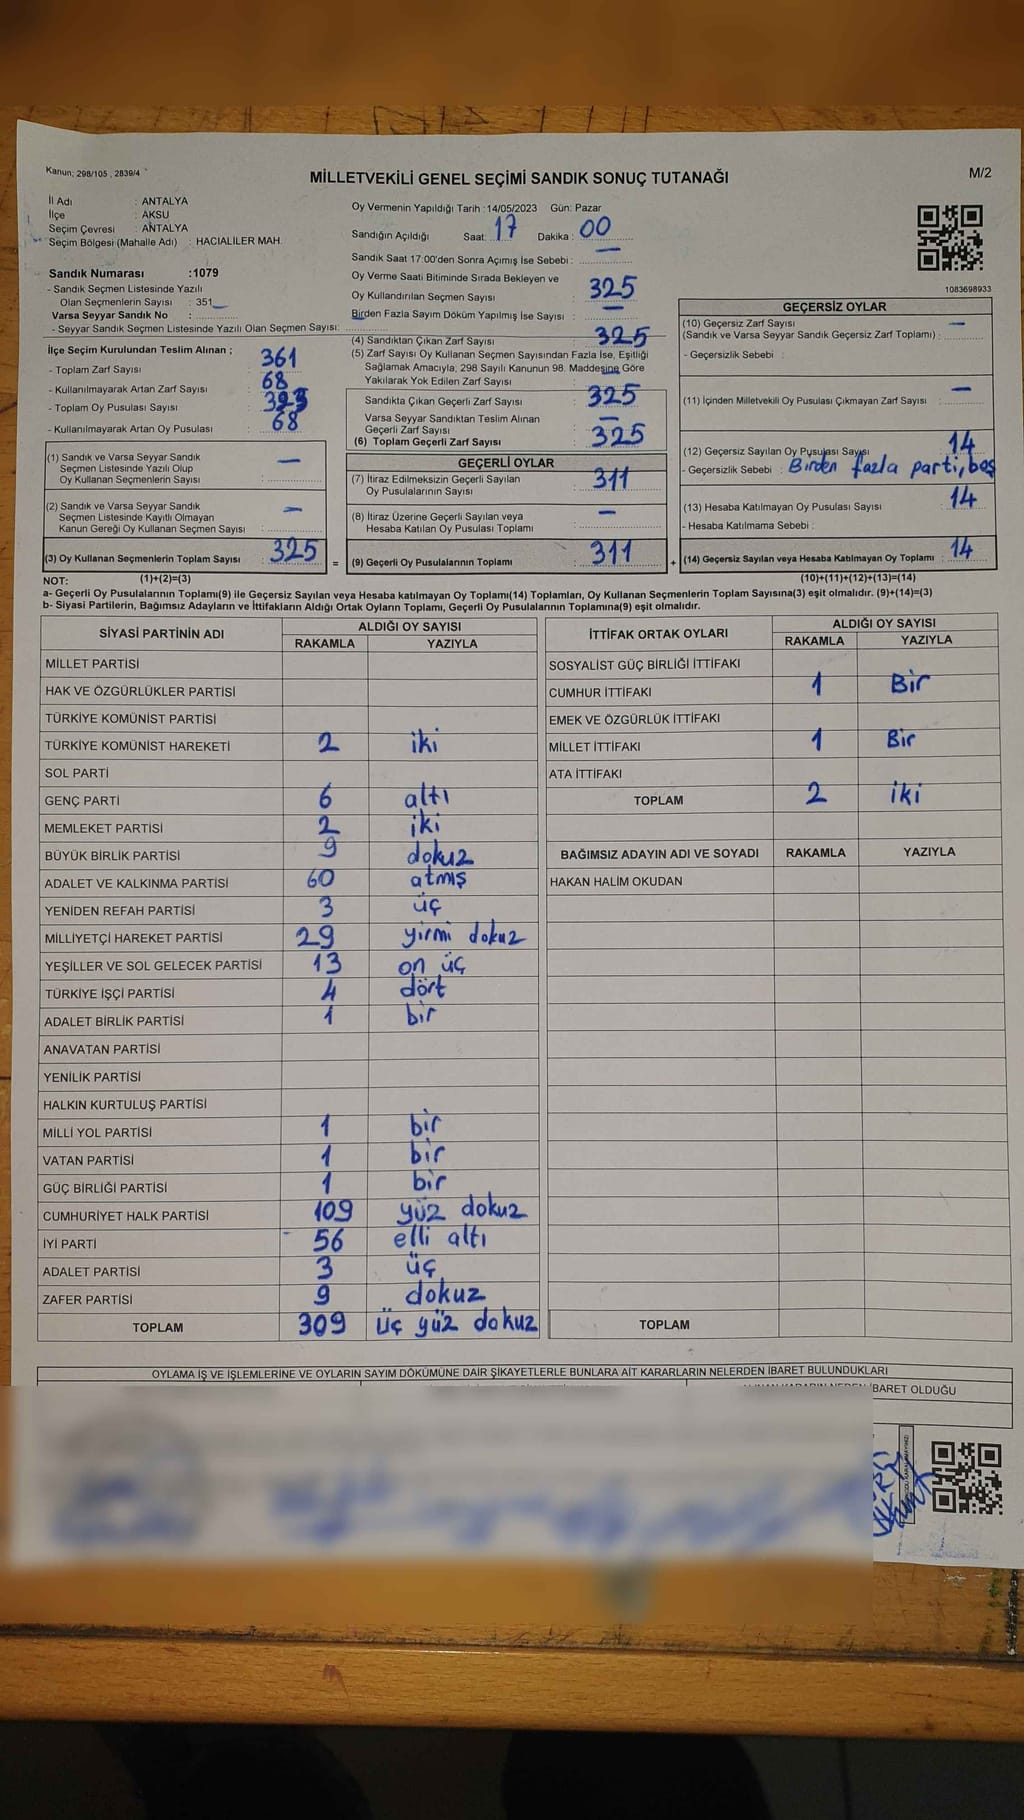 Kanun; 298/105 , 2839/4
M/2
MİLLETVEKİLİ GENEL SEÇİMİ SANDIK SONUÇ TUTANAĞI
İl Adı : ANTALYA
İlçe : AKSU
Seçim Çevresi : ANTALYA
Seçim Bölgesi (Mahalle Adı) : HACIALİLER MAH.
Sandık Numarası :1079
- Sandık Seçmen Listesinde Yazılı
Olan Seçmenlerin Sayısı : 351
Varsa Seyyar Sandık No :
- Seyyar Sandık Seçmen Listesinde Yazılı Olan Seçmen Sayısı:
Oy Vermenin Yapıldığı Tarih :14/05/2023 Gün: Pazar
Sandığın Açıldığı Saat: 17 Dakika : 00
Sandık Saat 17:00'den Sonra Açımış İse Sebebi : —
Oy Verme Saati Bitiminde Sırada Bekleyen ve
Oy Kullandırılan Seçmen Sayısı : 325
Birden Fazla Sayım Döküm Yapılmış İse Sayısı : —
1083698933
İlçe Seçim Kurulundan Teslim Alınan ;
- Toplam Zarf Sayısı : 361
- Kullanılmayarak Artan Zarf Sayısı : 68
- Toplam Oy Pusulası Sayısı :
- Kullanılmayarak Artan Oy Pusulası : 68
(1) Sandık ve Varsa Seyyar Sandık
Seçmen Listesinde Yazılı Olup
Oy Kullanan Seçmenlerin Sayısı : —
(2) Sandık ve Varsa Seyyar Sandık
Seçmen Listesinde Kayıtlı Olmayan
Kanun Gereği Oy Kullanan Seçmen Sayısı : —
(3) Oy Kullanan Seçmenlerin Toplam Sayısı : 325
(1)+(2)=(3)
(4) Sandıktan Çıkan Zarf Sayısı : 325
(5) Zarf Sayısı Oy Kullanan Seçmen Sayısından Fazla İse, Eşitliği
Sağlamak Amacıyla; 298 Sayılı Kanunun 98. Maddesine Göre
Yakılarak Yok Edilen Zarf Sayısı : —
Sandıkta Çıkan Geçerli Zarf Sayısı : 325
Varsa Seyyar Sandıktan Teslim Alınan
Geçerli Zarf Sayısı : —
(6) Toplam Geçerli Zarf Sayısı : 325
GEÇERLİ OYLAR
(7) İtiraz Edilmeksizin Geçerli Sayılan
Oy Pusulalarının Sayısı : 311
(8) İtiraz Üzerine Geçerli Sayılan veya
Hesaba Katılan Oy Pusulası Toplamı : —
= (9) Geçerli Oy Pusulalarının Toplamı : 311 +
GEÇERSİZ OYLAR
(10) Geçersiz Zarf Sayısı
(Sandık ve Varsa Seyyar Sandık Geçersiz Zarf Toplamı) : —
- Geçersizlik Sebebi :
(11) İçinden Milletvekili Oy Pusulası Çıkmayan Zarf Sayısı : —
(12) Geçersiz Sayılan Oy Pusulası Sayısı : 14
- Geçersizlik Sebebi : Birden fazla parti, boş
(13) Hesaba Katılmayan Oy Pusulası Sayısı : 14
- Hesaba Katılmama Sebebi :
(14) Geçersiz Sayılan veya Hesaba Katılmayan Oy Toplamı : 14
(10)+(11)+(12)+(13)=(14)
NOT:
a- Geçerli Oy Pusulasının Toplamı(9) ile Geçersiz Sayılan veya Hesaba katılmayan Oy Toplamı(14) Toplamları, Oy Kullanan Seçmenlerin Toplam Sayısına(3) eşit olmalıdır. (9)+(14)=(3)
b- Siyasi Partilerin, Bağımsız Adayların ve İttifakların Aldığı Ortak Oyların Toplamı, Geçerli Oy Pusulalarının Toplamına(9) eşit olmalıdır.
SİYASİ PARTİNİN ADI ALDIĞI OY SAYISI
RAKAMLA YAZIYLA
MİLLET PARTİSİ
HAK VE ÖZGÜRLÜKLER PARTİSİ
TÜRKİYE KOMÜNİST PARTİSİ
TÜRKİYE KOMÜNİST HAREKETİ 2 iki
SOL PARTİ
GENÇ PARTİ 6 altı
MEMLEKET PARTİSİ 2 iki
BÜYÜK BİRLİK PARTİSİ 9 dokuz
ADALET VE KALKINMA PARTİSİ 60 atmış
YENİDEN REFAH PARTİSİ 3 üç
MİLLİYETÇİ HAREKET PARTİSİ 29 yirmi dokuz
YEŞİLLER VE SOL GELECEK PARTİSİ 13 on üç
TÜRKİYE İŞÇİ PARTİSİ 4 dört
ADALET BİRLİK PARTİSİ 1 bir
ANAVATAN PARTİSİ
YENİLİK PARTİSİ
HALKIN KURTULUŞ PARTİSİ
MİLLİ YOL PARTİSİ 1 bir
VATAN PARTİSİ 1 bir
GÜÇ BİRLİĞİ PARTİSİ 1 bir
CUMHURİYET HALK PARTİSİ 109 yüz dokuz
İYİ PARTİ 56 elli altı
ADALET PARTİSİ 3 üç
ZAFER PARTİSİ 9 dokuz
TOPLAM 309 üç yüz dokuz
İTTİFAK ORTAK OYLARI ALDIĞI OY SAYISI
RAKAMLA YAZIYLA
SOSYALİST GÜÇ BİRLİĞİ İTTİFAKI
CUMHUR İTTİFAKI 1 Bir
EMEK VE ÖZGÜRLÜK İTTİFAKI
MİLLET İTTİFAKI 1 Bir
ATA İTTİFAKI
TOPLAM 2 iki
BAĞIMSIZ ADAYIN ADI VE SOYADI RAKAMLA YAZIYLA
HAKAN HALİM OKUDAN
TOPLAM
OYLAMA İŞ VE İŞLEMLERİNE VE OYLARIN SAYIM DÖKÜMÜNE DAİR ŞİKAYETLERLE BUNLARA AİT KARARLARIN NELERDEN İBARET BULUNDUKLARI
İBARET OLDUĞU